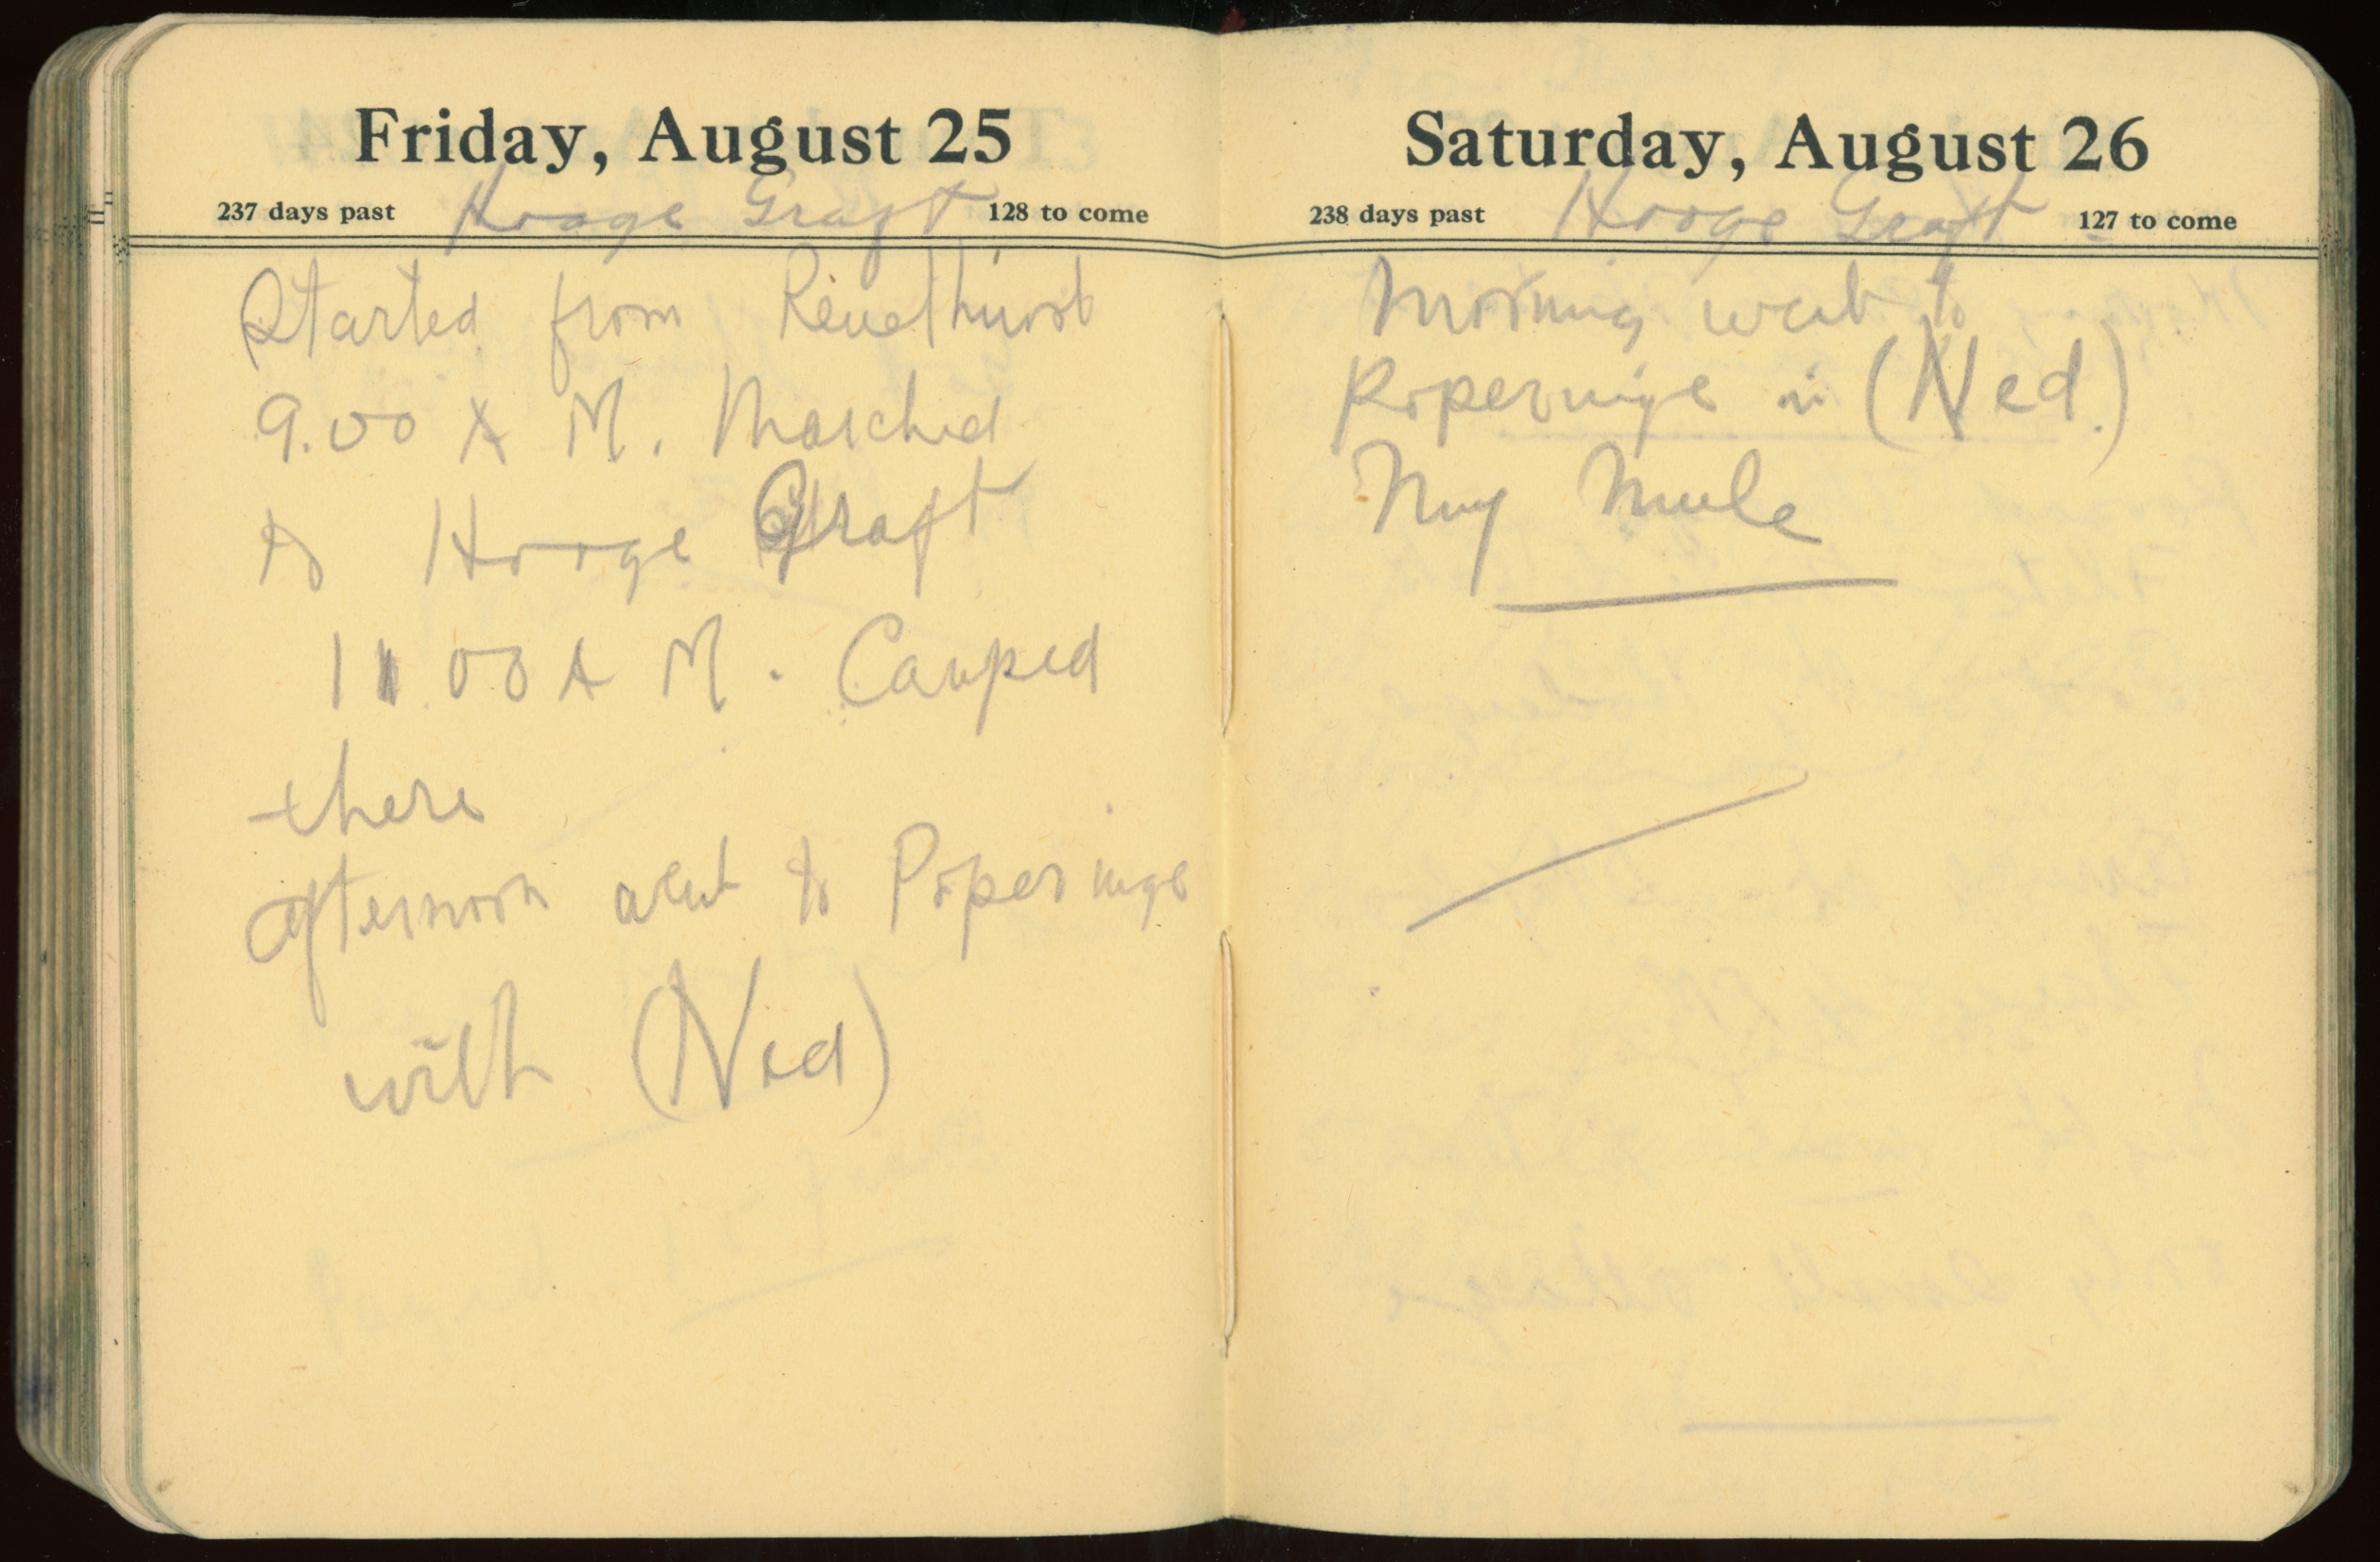 Friday, August 25
237 days past Hooge Graft 128 to come
Started from
9.00 A M. Marched
to Hooge Graft
11.00 A M. Camped
there
afternoon went to Poperinge
with (Ned)
Saturday, August 26
238 days past Hooge Graft 127 to come
Morning went to
Poperninge in (Ned.)
My Mule